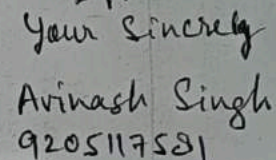 Your Sincrely
Avinash Singh
9205117581